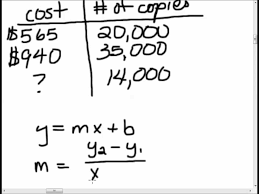 cost # of copies
$565 20,000
$940 35,000
? 14,000
y = mx + b
m = y₂ - y₁
x